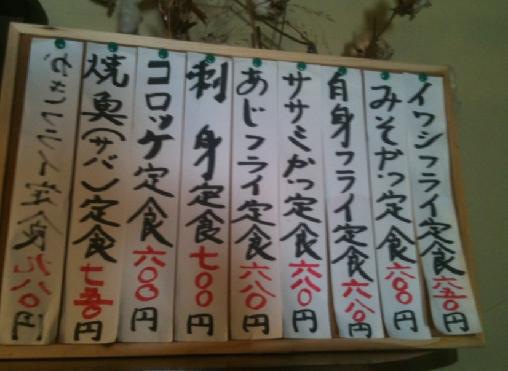 イワシフライ定食 六五〇円
みそかつ定食 六〇〇円
白身フライ定食 六八〇円
ササミかつ定食 六八〇円
あじフライ定食 六八〇円
刺身定食 七〇〇円
コロッケ定食 六〇〇円
焼魚(サバ)定食 七五〇円
かきフライ定食 九八〇円